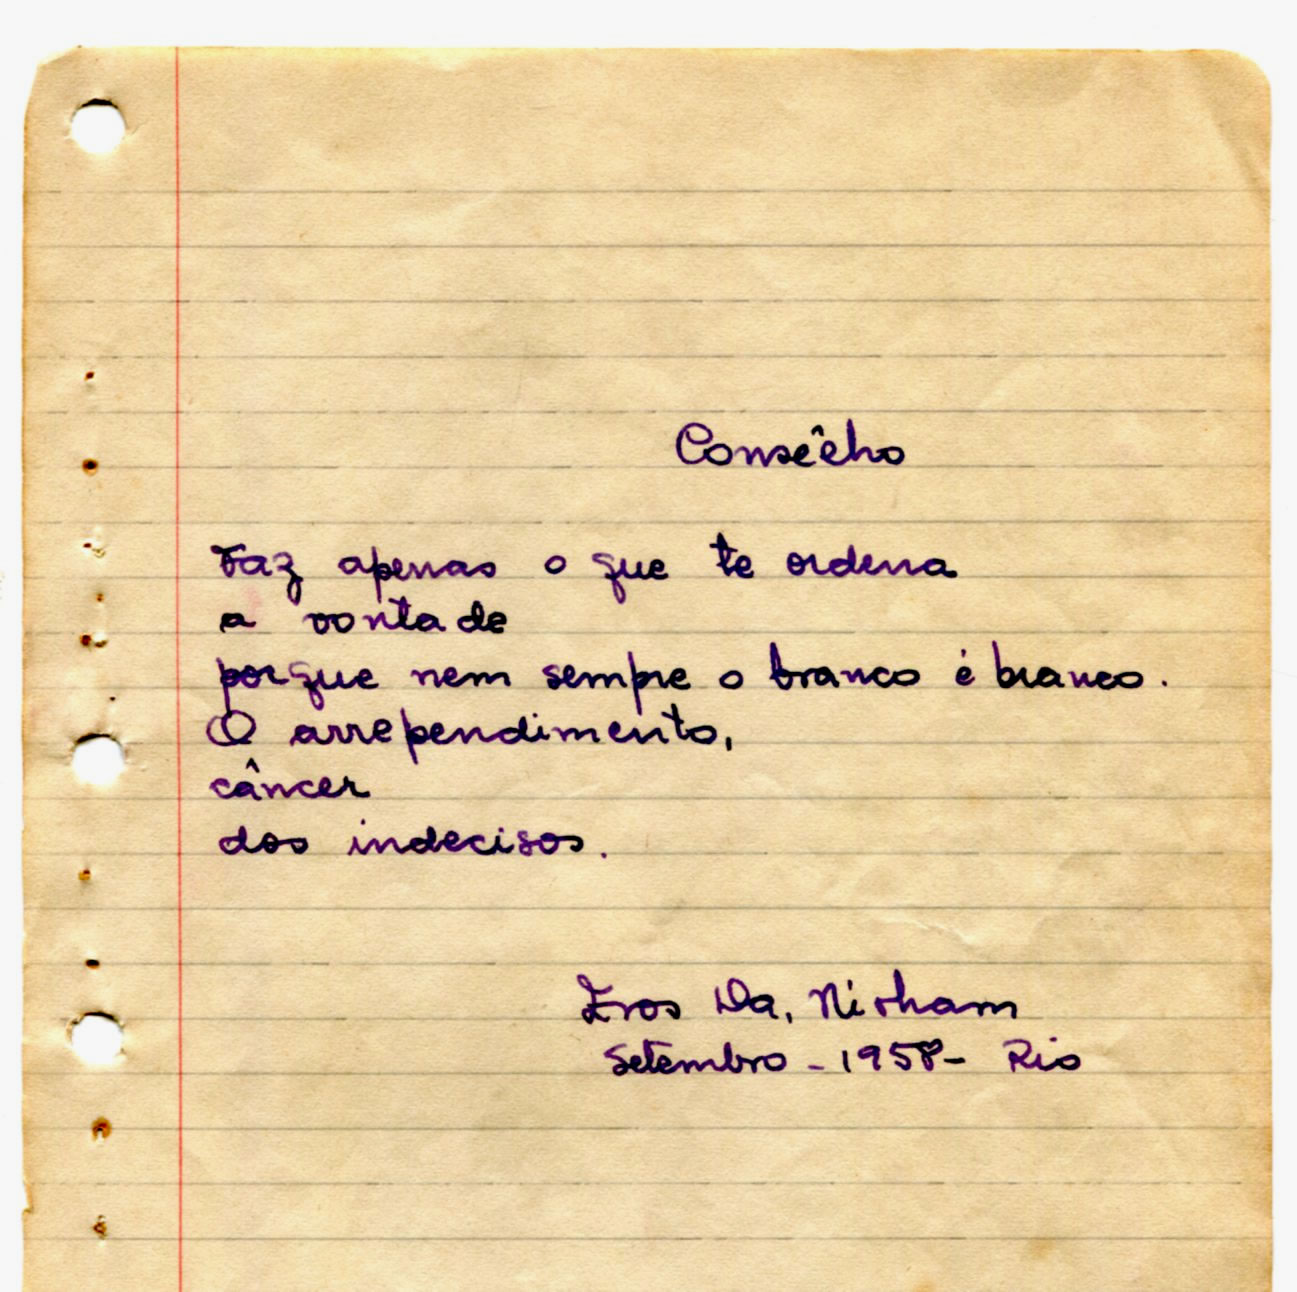 Consêlho
Faz apenas o que te ordena
a vontade
porque nem sempre o branco é branco.
O arrependimento,
câncer
dos indecisos.
Eros Da, Nirham
Setembro - 1958 - Rio